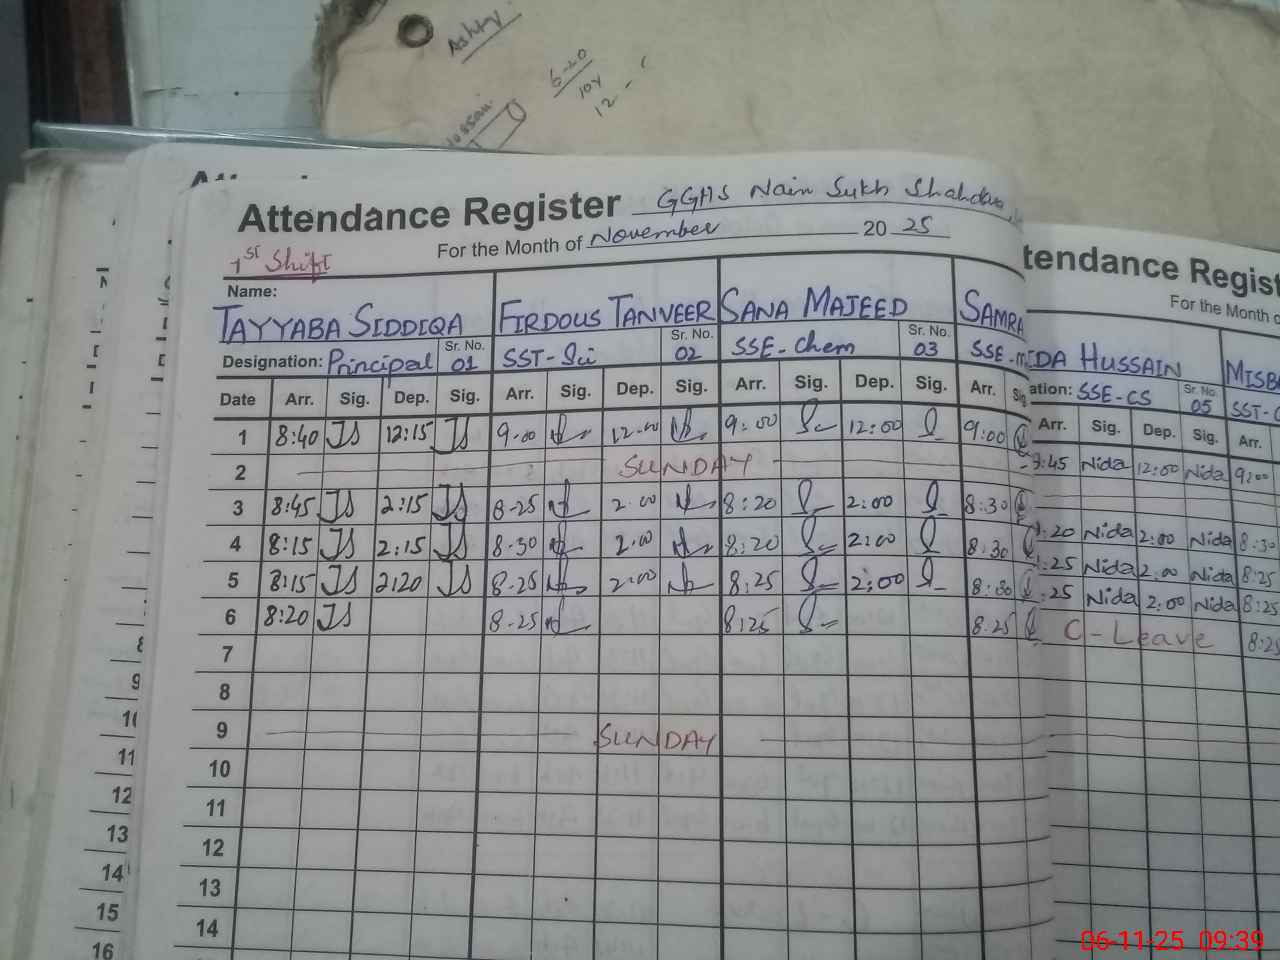 Ashfaq
6-20
104
12 -
Attendance Register GGHS Nain Sukh Shahdara,
For the Month of November 20 25
1st Shift
Name:
TAYYABA SIDDIQA FIRDOUS TANVEER SANA MAJEED SAMRA
Designation: Principal Sr. No. 01 SST-Sci Sr. No. 02 SSE-Chem Sr. No. 03 SSE-m
Date Arr. Sig. Dep. Sig. Arr. Sig. Dep. Sig. Arr. Sig. Dep. Sig. Arr. Sig
1 8:40 JS 12:15 JS 9.00 12.00 9:00 12:00 9:00
2 SUNDAY
3 8:45 JS 2:15 JS 8-25 2.00 8:20 2:00 8:30
4 8:15 JS 2:15 JS 8.30 2.00 8:20 2:00 8:30
5 8:15 JS 2:20 JS 8-25 2:00 8:25 2:00 8:30
6 8:20 JS 8-25 8:25 8.25
7
8
9 SUNDAY
10
11
12
13
14
tendance Regist
For the Month o
IDA HUSSAIN MISBA
ation: SSE-CS Sr. No. 05 SST-
Arr. Sig. Dep. Sig. Arr.
:45 Nida 12:00 Nida 9:00
:20 Nida 2:00 Nida 8:30
:25 Nida 2.00 Nida 8:25
:25 Nida 2:00 Nida 8:25
C-Leave 8:25
8
9
10
11
12
13
14
15
16
06-11-25 09:39